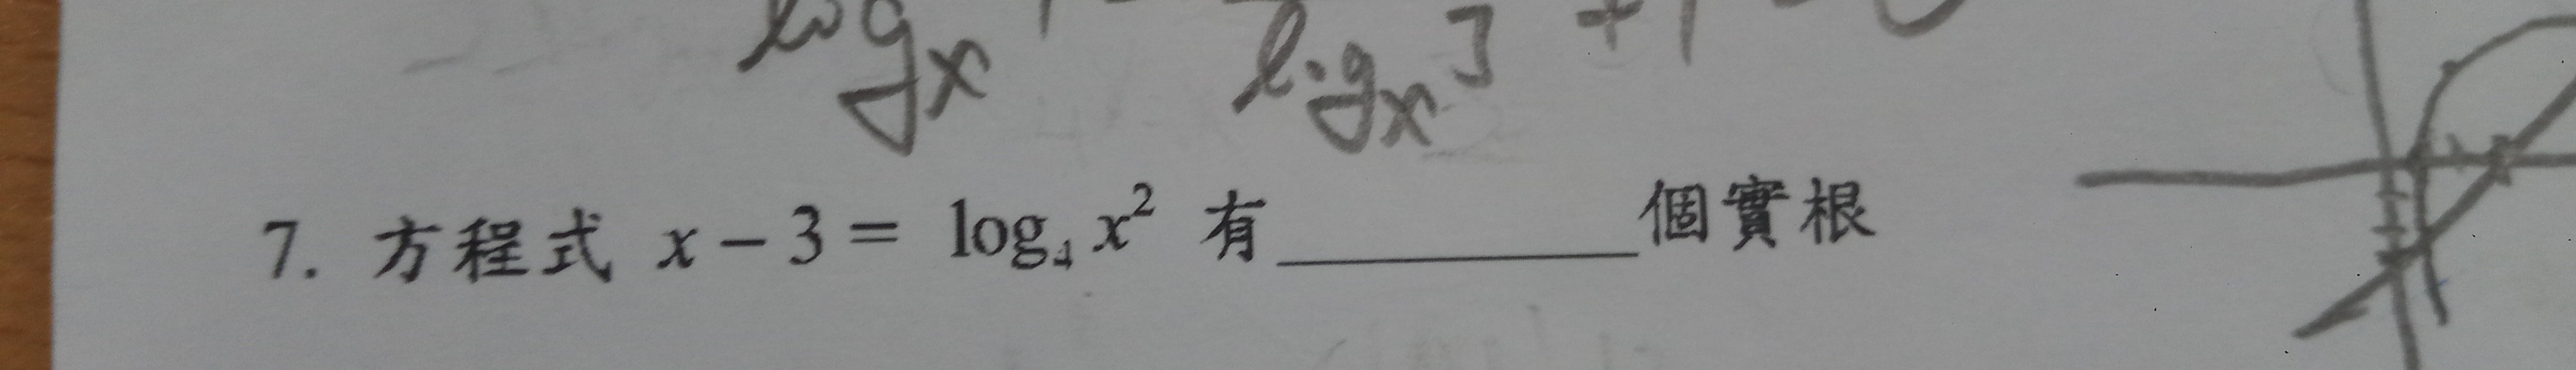 log_x
log_x 3 + 1
7. 方程式 x − 3 = log₄ x² 有________個實根